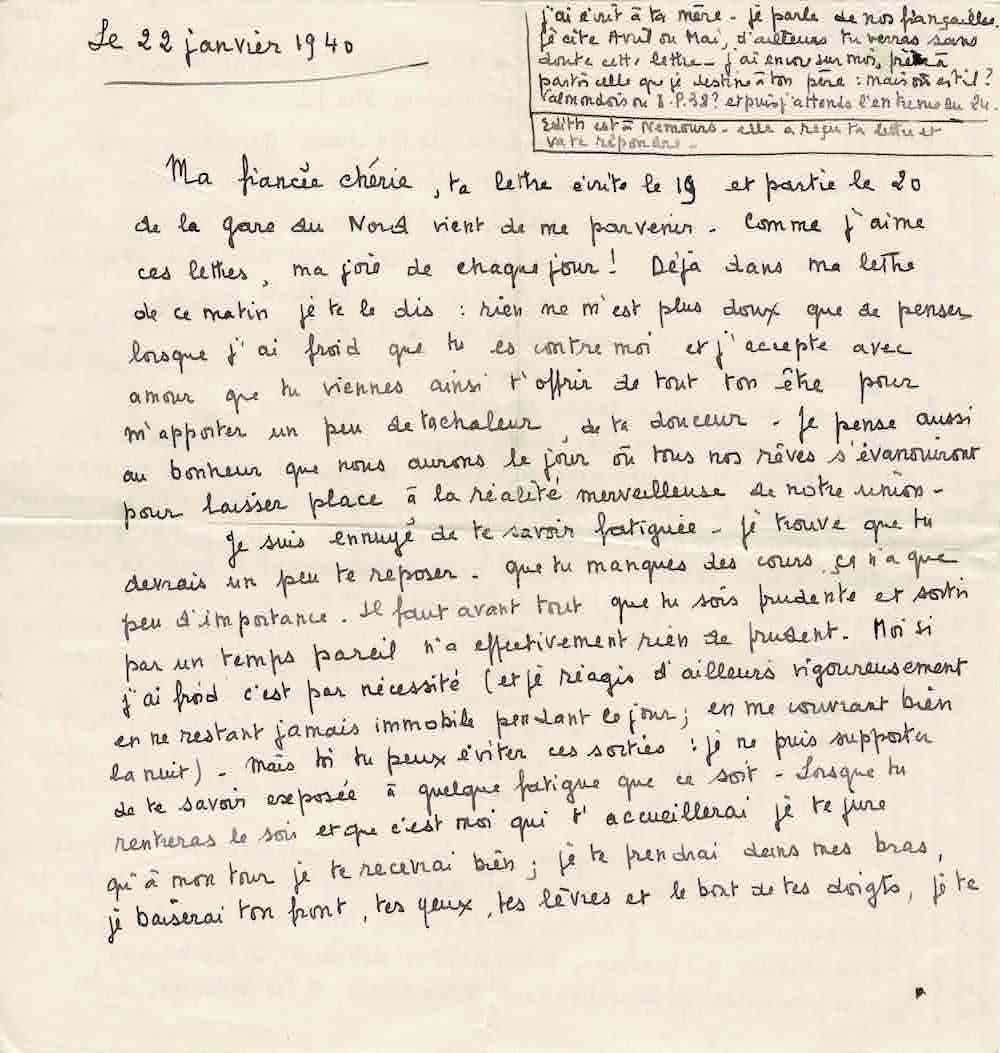 Le 22 janvier 1940
j'ai écrit à ta mère - je parle de nos fiançailles.
je cite Avril ou Mai, d'ailleurs tu verras sans
doute cette lettre - j'ai encore sur moi, prête à
partir celle que je destine à ton père : mais où est il ?
Valmondois ou S.P.38 ? et puis j'attends l'entrevue du 24.
Edith est à Nemours - elle a reçu ta lettre et
va te répondre -
Ma fiancée chérie, ta lettre écrite le 19 et partie le 20
de la gare du Nord vient de me parvenir - Comme j'aime
ces lettres, ma joie de chaque jour ! Déjà dans ma lettre
de ce matin je te le dis : rien ne m'est plus doux que de penser
lorsque j'ai froid que tu es contre moi et j'accepte avec
amour que tu viennes ainsi t'offrir de tout ton être pour
m'apporter un peu de ta chaleur, de ta douceur - Je pense aussi
au bonheur que nous aurons le jour où tous nos rêves s'évanouiront
pour laisser place à la réalité merveilleuse de notre union -
Je suis ennuyé de te savoir fatiguée - je trouve que tu
devrais un peu te reposer - que tu manques des cours, ça n'a que
peu d'importance. Il faut avant tout que tu sois prudente et sortir
par un temps pareil n'a effectivement rien de prudent. Moi si
j'ai froid c'est par nécessité (et je réagis d'ailleurs vigoureusement
en ne restant jamais immobile pendant le jour ; en me couvrant bien
la nuit) - Mais toi tu peux éviter ces sorties : je ne puis supporter
de te savoir exposée à quelque fatigue que ce soit - Lorsque tu
rentreras le soir et que c'est moi qui t'accueillerai je te jure
qu'à mon tour je te recevrai bien ; je te prendrai dans mes bras,
je baiserai ton front, tes yeux, tes lèvres et le bout de tes doigts, je te